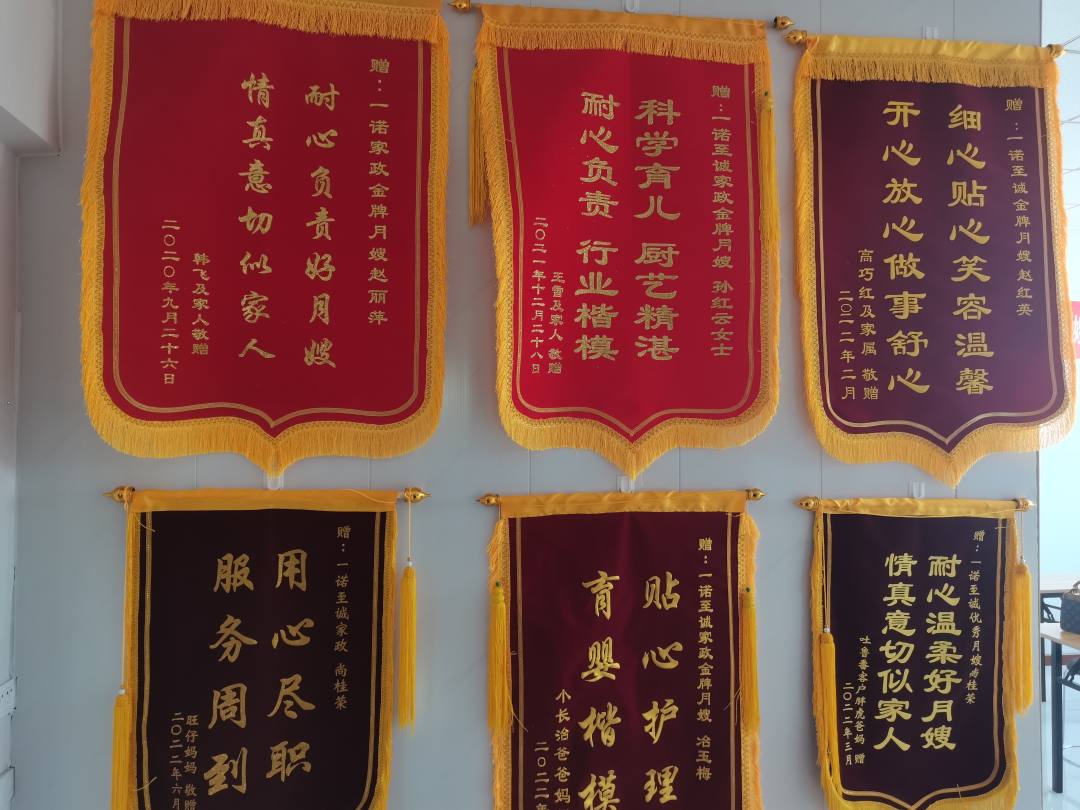 赠：一诺家政金牌月嫂赵丽萍
耐心负责好月嫂
情真意切似家人
韩飞及家人敬赠
二〇二〇年九月二十六日
赠：一诺至诚家政金牌月嫂 孙红云女士
科学育儿 厨艺精湛
耐心负责 行业楷模
王雪及家人 敬赠
二〇二一年十二月二十八日
赠：一诺至诚金牌月嫂赵红英
细心贴心笑容温馨
开心放心做事舒心
高巧红及家属 敬赠
二〇二二年二月
赠：一诺至诚家政 尚桂荣
用心尽职
服务周到
旺仔妈妈 敬赠
二〇二二年六月
赠：一诺至诚家政金牌月嫂 冶玉梅
贴心护理
育婴楷模
小长治爸爸妈
二〇二二
赠：一诺至诚优秀月嫂尚桂荣
耐心温柔好月嫂
情真意切似家人
吐鲁番客户胖虎爸妈 赠
二〇二二年三月